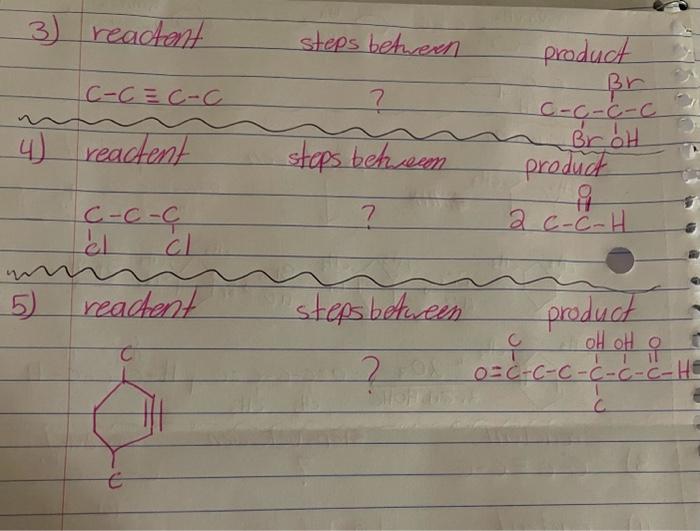 3) reactent steps between product
Br
C-C≡C-C ? C-C-C-C
Br OH
4) reactent steps between product
O
C-C-C ? 2 C-C-H
Cl Cl
5) reactent steps between product
C C OH OH O
? O=C-C-C-C-C-C-H
C
C